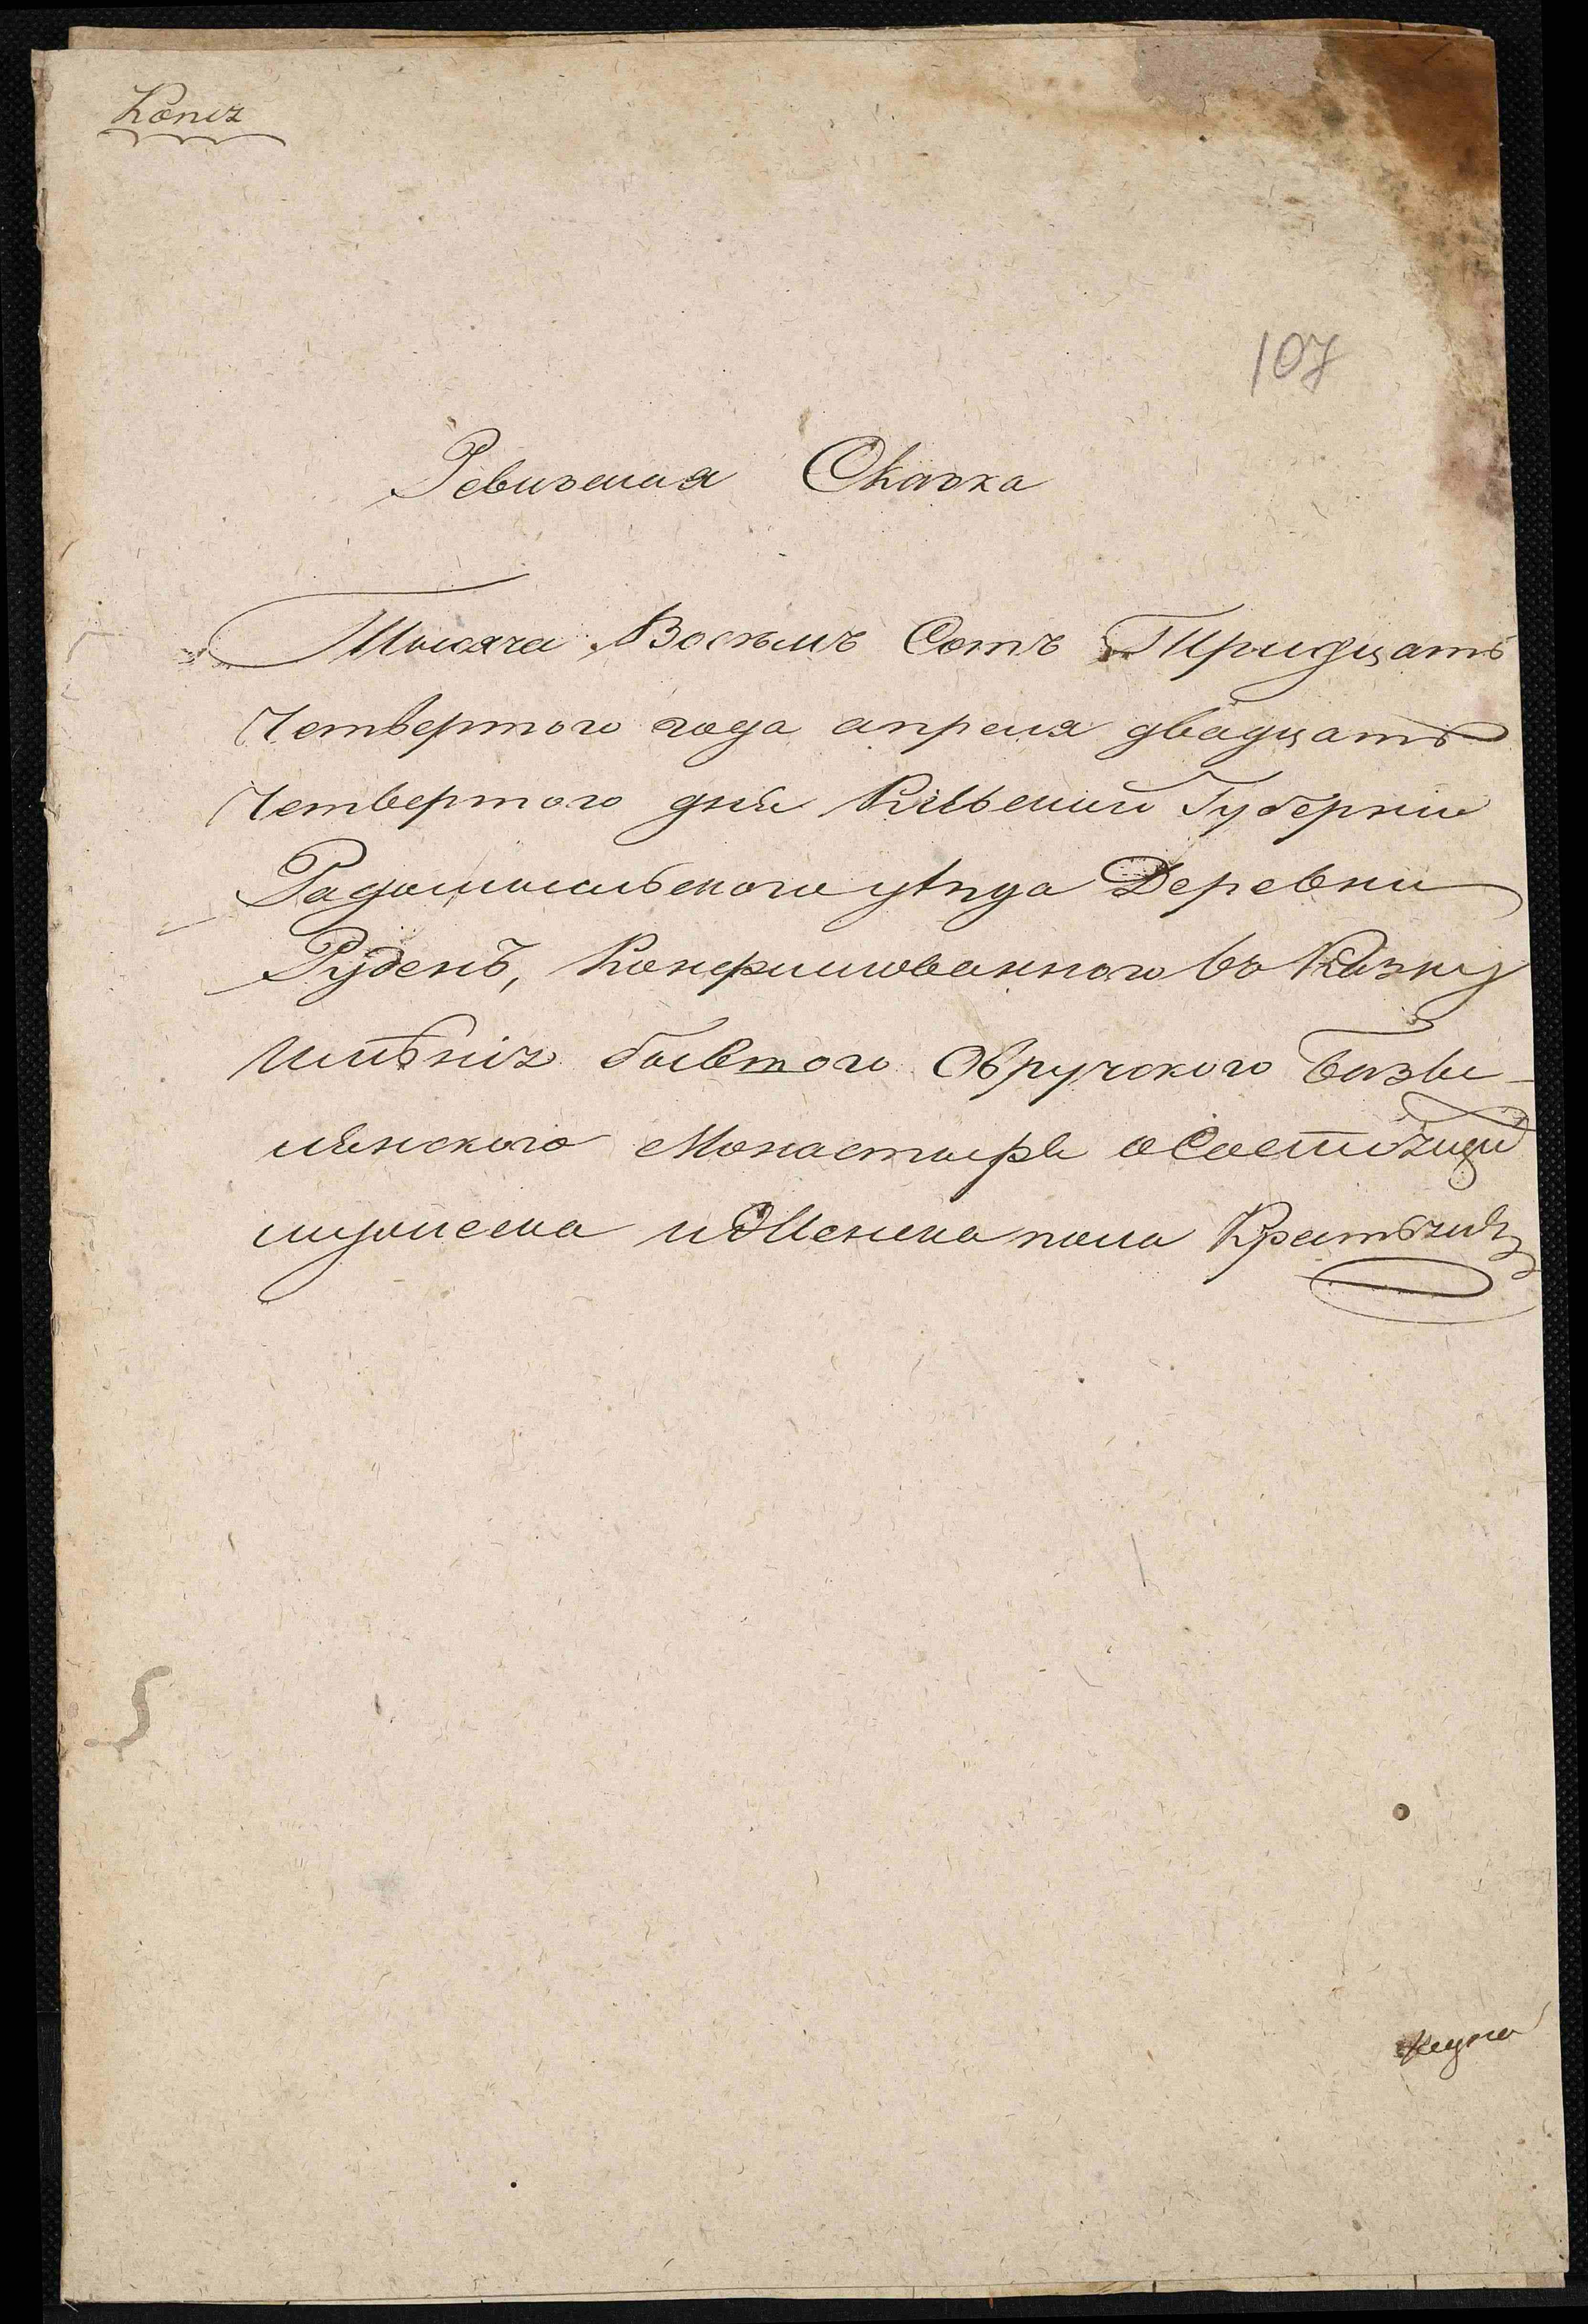 Копія
107
Ревизская Сказка
Тысяча Восемъ Сотъ Тридцать
Четвертого года апреля двадцать
Четвертого дня Кіевской Губерніи
Радомысльского уѣзда Деревни
Рудень, Конфискованного въ Казну
имѣнія бывшого Овручского Бази-
лянского Монастыря о Состоящихъ
мужеска и Женска пола Крестьянъ